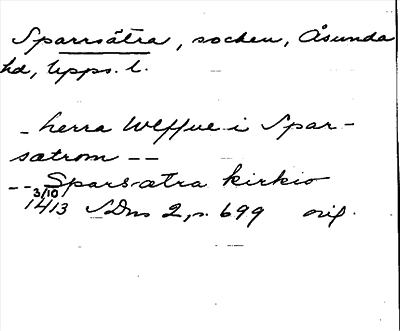 Sparrsätra, socken, Åsunda
hd, Upps. l.
– herra Wlffue i Spar-
sætrom – –
– – Sparsætra kirkio
3/10
1413 SDns 2, s. 699 orig.